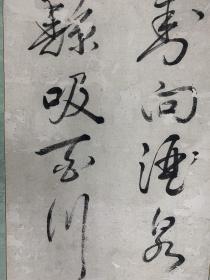 封向酒泉
鯨吸百川